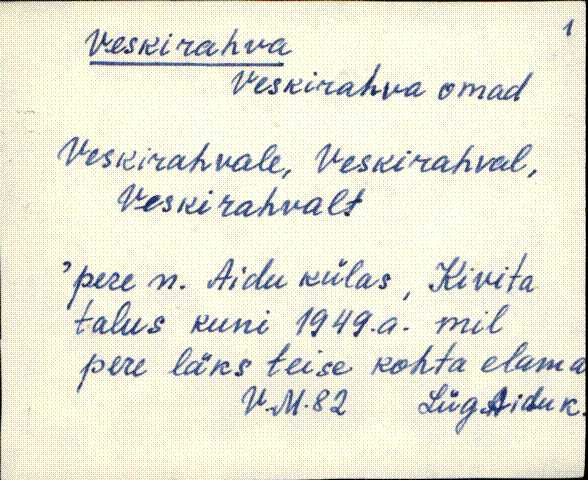 1
Veskirahva
Veskirahva omad
Veskirahvale, Veskirahval,
Veskirahvalt
'pere n. Aidu külas, Kivita
talus kuni 1949.a. mil
pere läks teise kohta elama
V.M.82 Lüg Aidu k.